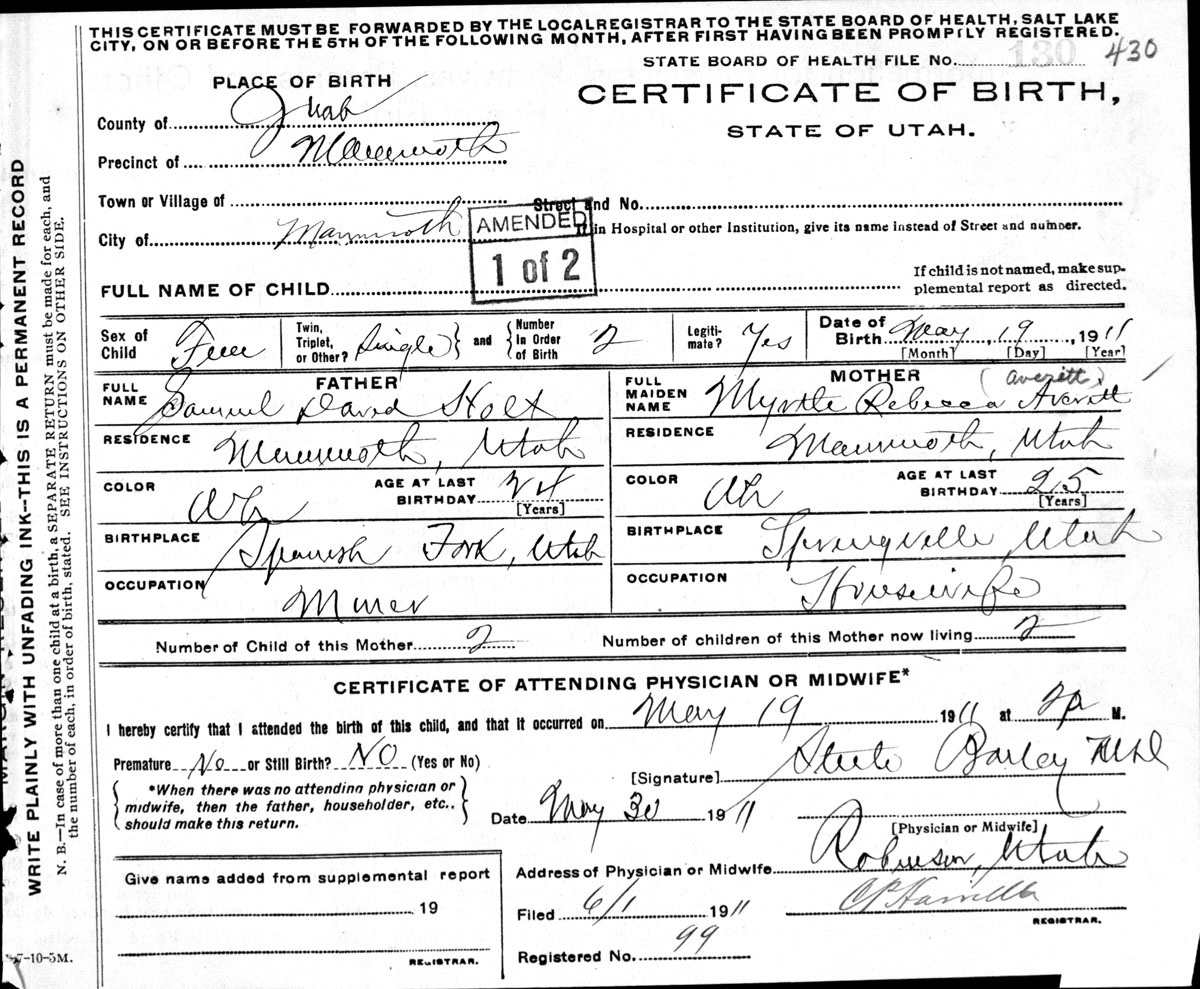 THIS CERTIFICATE MUST BE FORWARDED BY THE LOCAL REGISTRAR TO THE STATE BOARD OF HEALTH, SALT LAKE
CITY, ON OR BEFORE THE 5TH OF THE FOLLOWING MONTH, AFTER FIRST HAVING BEEN PROMPTLY REGISTERED.
STATE BOARD OF HEALTH FILE No. 130 430
PLACE OF BIRTH
CERTIFICATE OF BIRTH,
STATE OF UTAH.
County of Juab
Precinct of Mammoth
Town or Village of
Street and No.
City of Mammoth
AMENDED
1 of 2
in Hospital or other Institution, give its name instead of Street and number.
FULL NAME OF CHILD
If child is not named, make sup-
plemental report as directed.
Sex of Child Fem
Twin, Triplet, or Other? Single and Number In Order of Birth 2
Legiti-mate? Yes
Date of Birth May 19, 1911
[Month] [Day] [Year]
FATHER
FULL NAME Samuel David Holt
RESIDENCE Mammoth, Utah
COLOR Wh
AGE AT LAST BIRTHDAY 24
[Years]
BIRTHPLACE Spanish Fork, Utah
OCCUPATION Miner
MOTHER (Averett)
FULL MAIDEN NAME Myrtle Rebecca Averitt
RESIDENCE Mammoth, Utah
COLOR Wh
AGE AT LAST BIRTHDAY 25
[Years]
BIRTHPLACE Springville, Utah
OCCUPATION Housewife
Number of Child of this Mother 2
Number of children of this Mother now living 2
CERTIFICATE OF ATTENDING PHYSICIAN OR MIDWIFE*
I hereby certify that I attended the birth of this child, and that it occurred on May 19 1911 at 2 P M.
Premature No or Still Birth? No (Yes or No)
*When there was no attending physician or
midwife, then the father, householder, etc.,
should make this return.
[Signature] Steele Bailey MD
Date May 30 1911
[Physician or Midwife]
Address of Physician or Midwife Robinson, Utah
Give name added from supplemental report
19
REGISTRAR.
Filed 6/1 1911
REGISTRAR.
Registered No. 99
7-10-5M.
WRITE PLAINLY WITH UNFADING INK--THIS IS A PERMANENT RECORD
N. B.—In case of more than one child at a birth, a SEPARATE RETURN must be made for each, and
the number of each, in order of birth, stated. SEE INSTRUCTIONS ON OTHER SIDE.